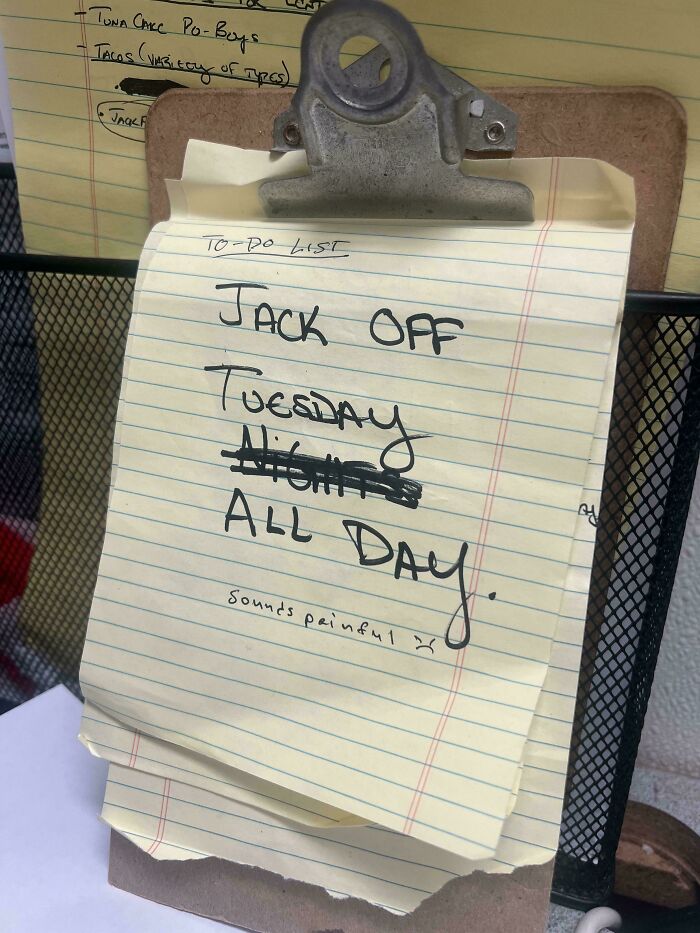 - TUNA CAKE PO-BOYS
- TACOS (VARIETY OF TYPES)
TO-DO LIST
JACK OFF
TUESDAY
NIGHTS
ALL DAY.
Sounds painful :(